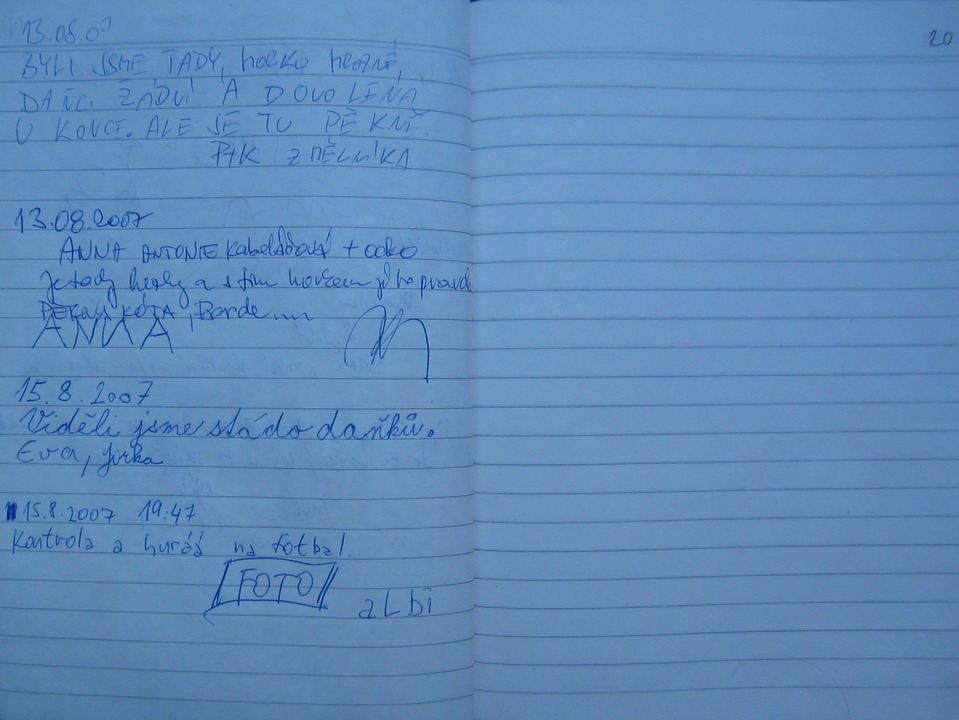 13.08.07
20
BYLI JSME TADY, HORKO HROZNÉ,
ŽÁDNÍ A DOVOLENÁ
U KONCE. ALE JE TU PĚKNĚ.
Z MĚLNÍKA
13.08.2007
ANNA ANTONIE +
Je tady hezky a s tím je to pravda
ANNA
15.8.2007
Viděli jsme stádo daňků.
Eva, Jirka
15.8.2007 19:47
Kontrola a huráá na fotbal.
FOTO
aLbi